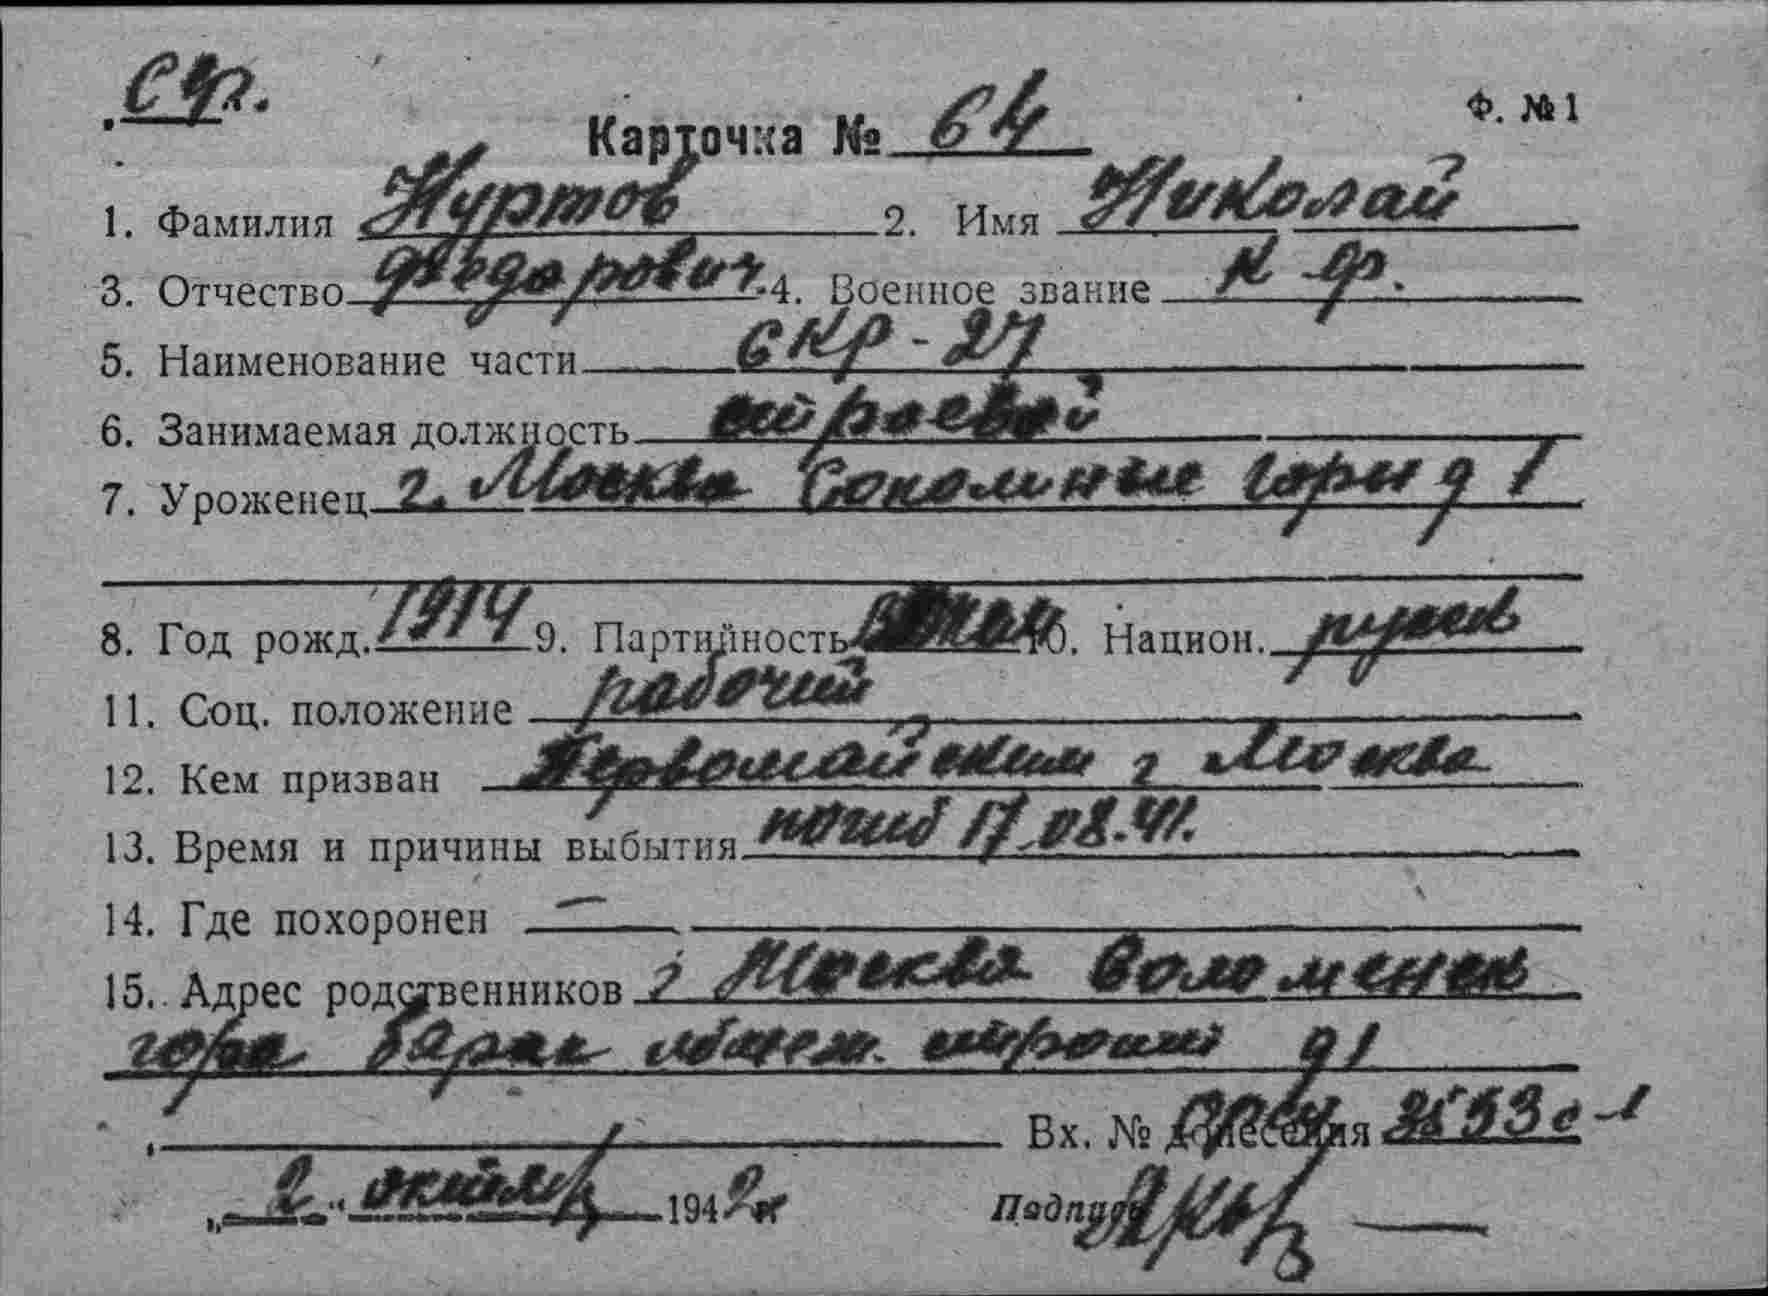 Сф.
Ф. №1
Карточка № 64
1. Фамилия Нуртов 2. Имя Николай
3. Отчество Федорович 4. Военное звание к-ф.
5. Наименование части СКР-27
6. Занимаемая должность строевой
7. Уроженец г. Москва Соколиные горы д 1
8. Год рожд. 1914 9. Партийность 10. Национ. русский
11. Соц. положение рабочий
12. Кем призван Первомайским г Москва
13. Время и причины выбытия погиб 17.08.41.
14. Где похоронен —
15. Адрес родственников г Москва
гора барак д 1
Вх. № донесения с-1
„2“ октября 1942 г
Подпись